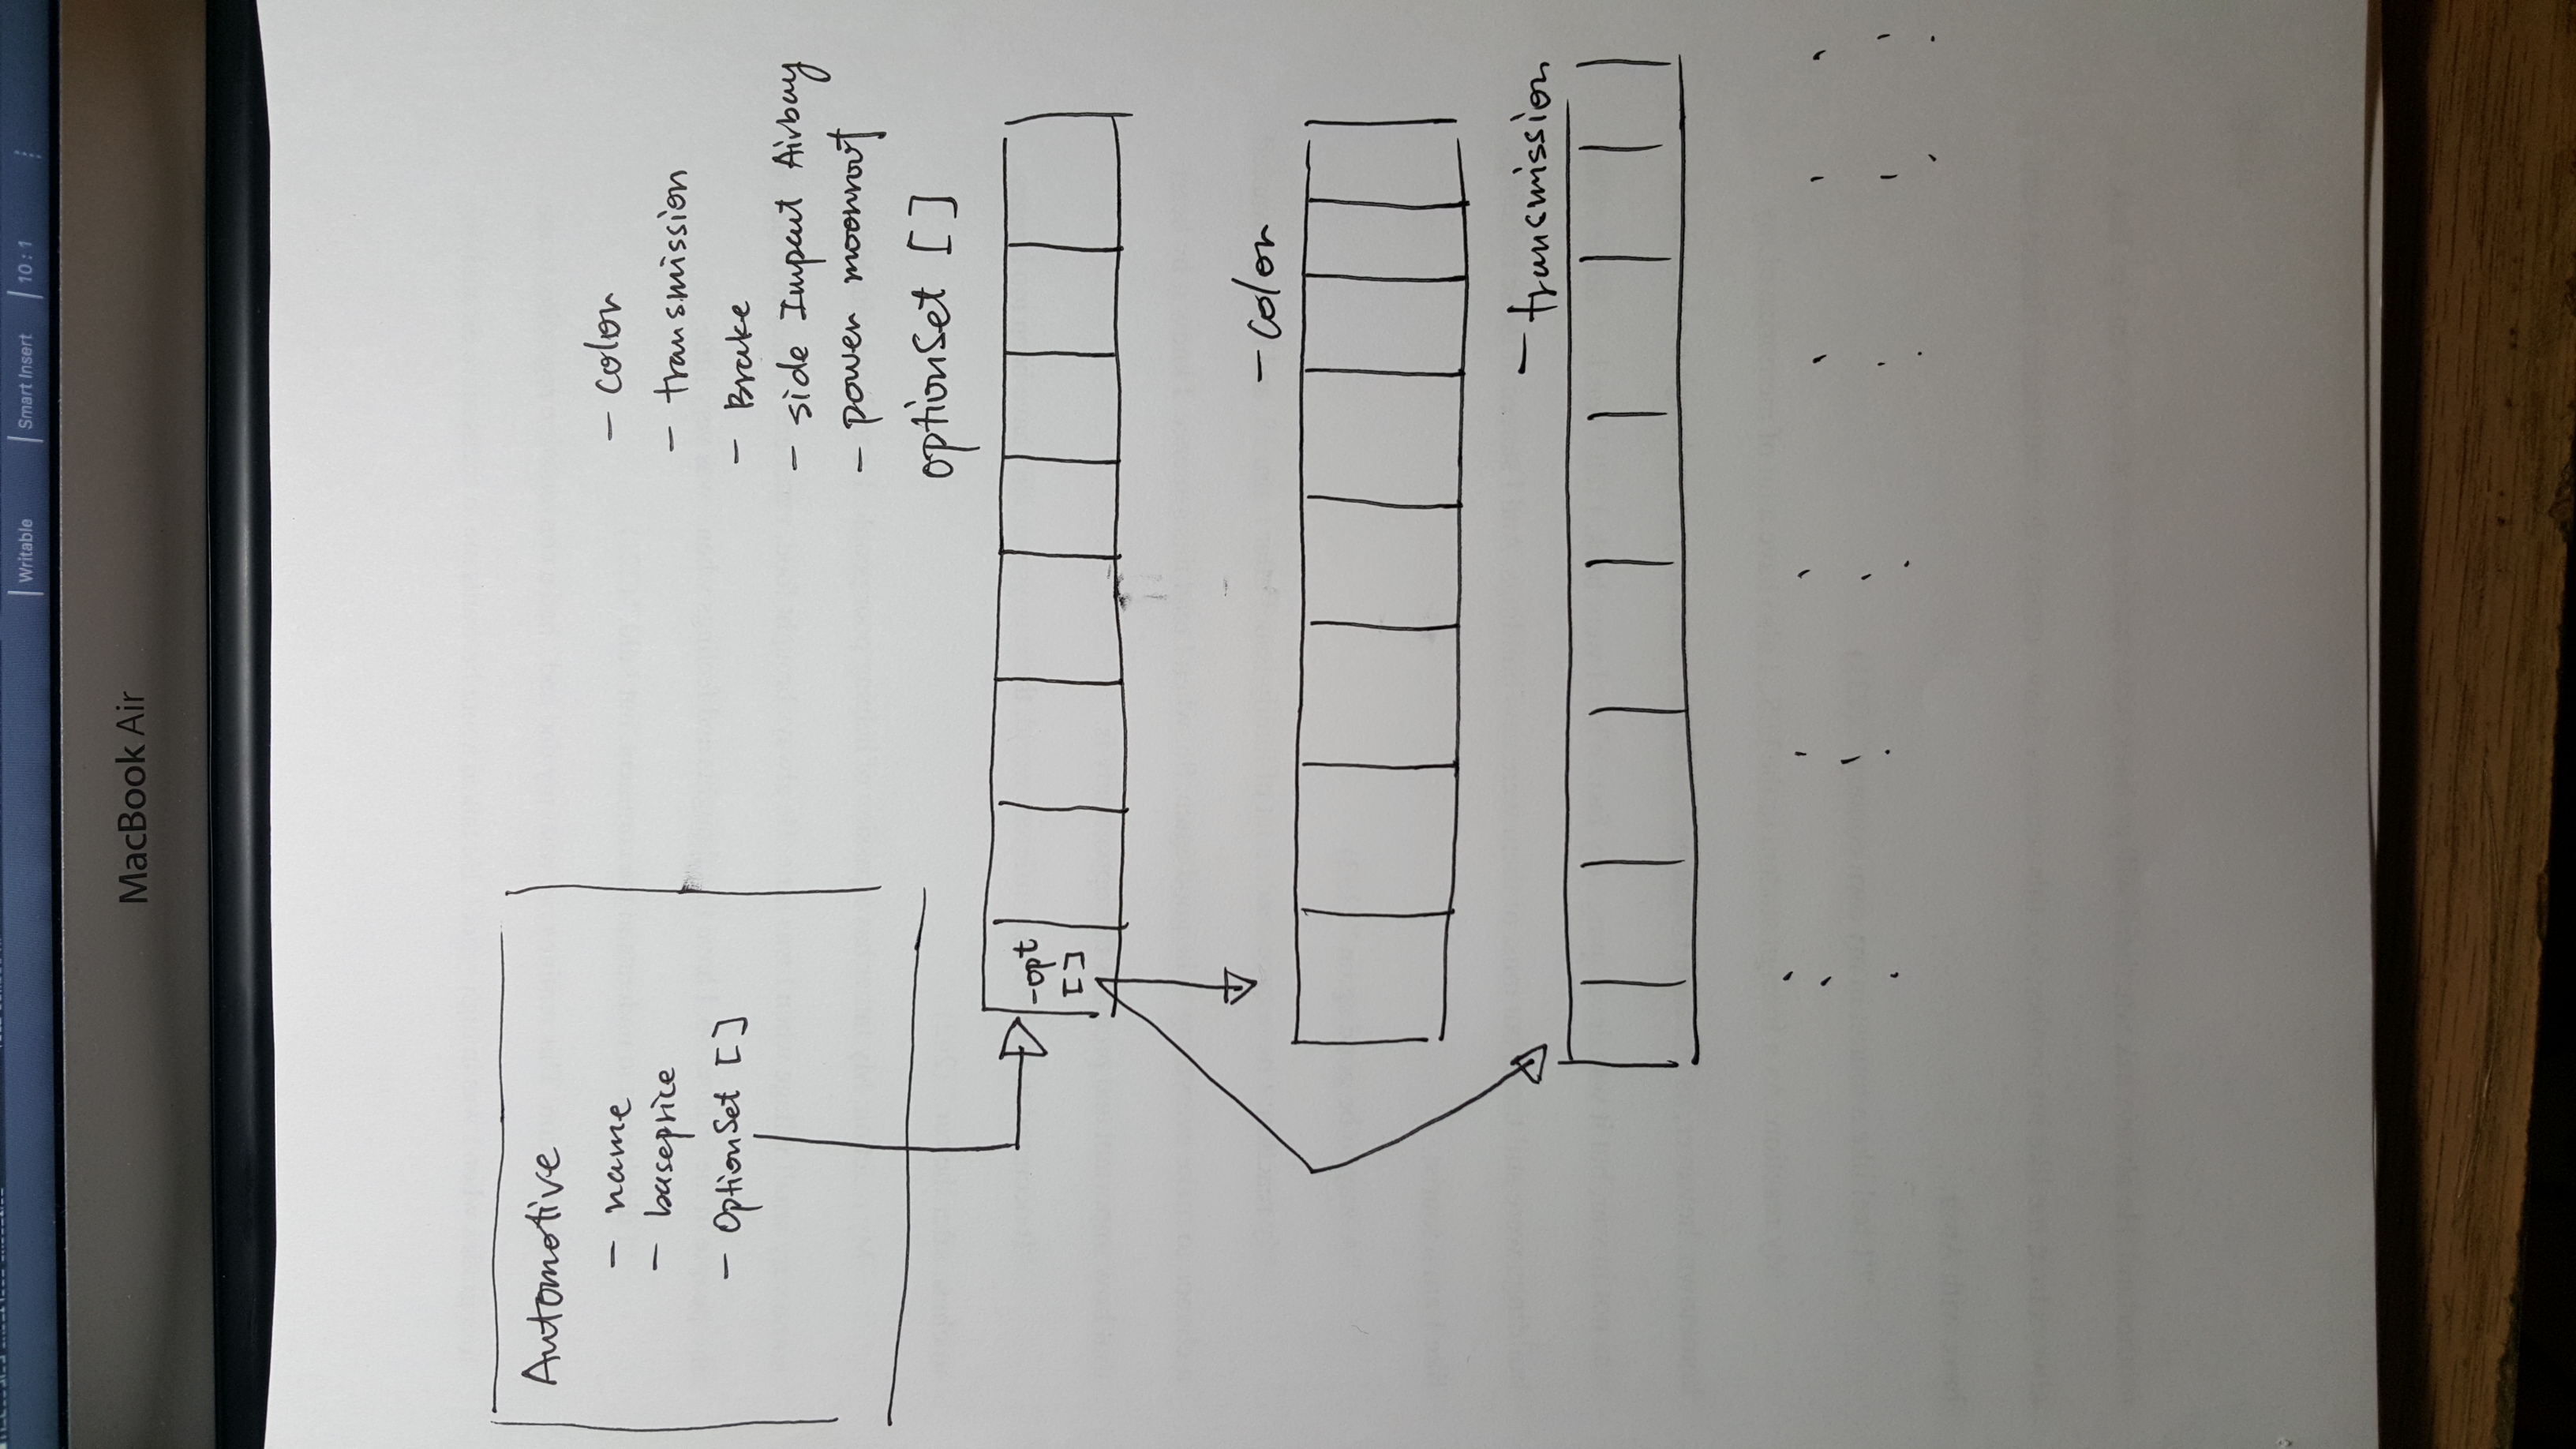 Writable
Smart Insert
10 : 1
MacBook Air
Automotive
- name
- baseprice
- OptionSet []
- color
- transmission
- Brake
- side Impact Airbag
- power moonroof
optionSet []
-opt
[]
- color
- transmission